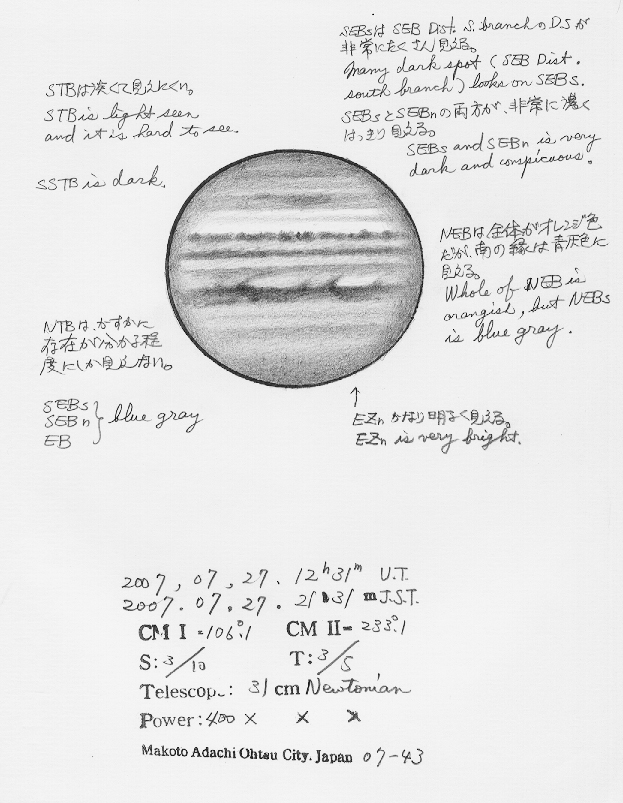 SEBsは SEB Dist. S. branchのD.Sが
非常にたくさん見える。
Many dark spot (SEB Dist.
south branch) looks on SEBs.
SEBsとSEBnの両方が、非常に濃く
はっきり見える。
SEBs and SEBn is very
dark and conspicuous.
STBは淡くて見えにくい。
STB is light seen
and it is hard to see.
SSTB is dark.
NEBは全体がオレンジ色
だが、南の縁は青灰色に
見える。
Whole of NEB is
orangish, but NEBs
is blue gray.
NTBは、かすかに
存在が分かる程
度にしか見えない。
SEBs
SEBn } blue gray
EB
↑
EZn かなり明るく見える。
EZn is very bright.
2007, 07, 27. 12h31m U.T.
2007. 07. 27. 21h31m J.S.T.
CM I = 106°.1 CM II = 233°.1
S: 3/10 T: 3/5
Telescope: 31 cm Newtonian
Power: 400 × × ×
Makoto Adachi Ohtsu City. Japan 07-43